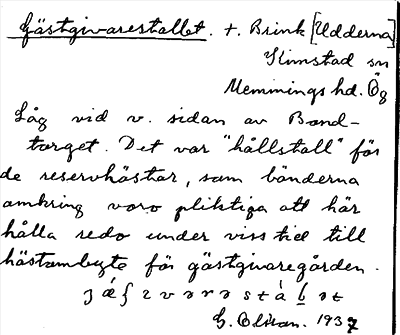 Gästgivarestallet. t. Brink [Udderna]
Kimstad sn
Memmings hd. Ög
Låg vid v. sidan av Band-
torget. Det var "hållstall" för
de reservhästar, som bönderna
omkring voro pliktiga att här
hålla redo under viss tid till
hästombyte för gästgivaregården.
G. Olsson. 1937